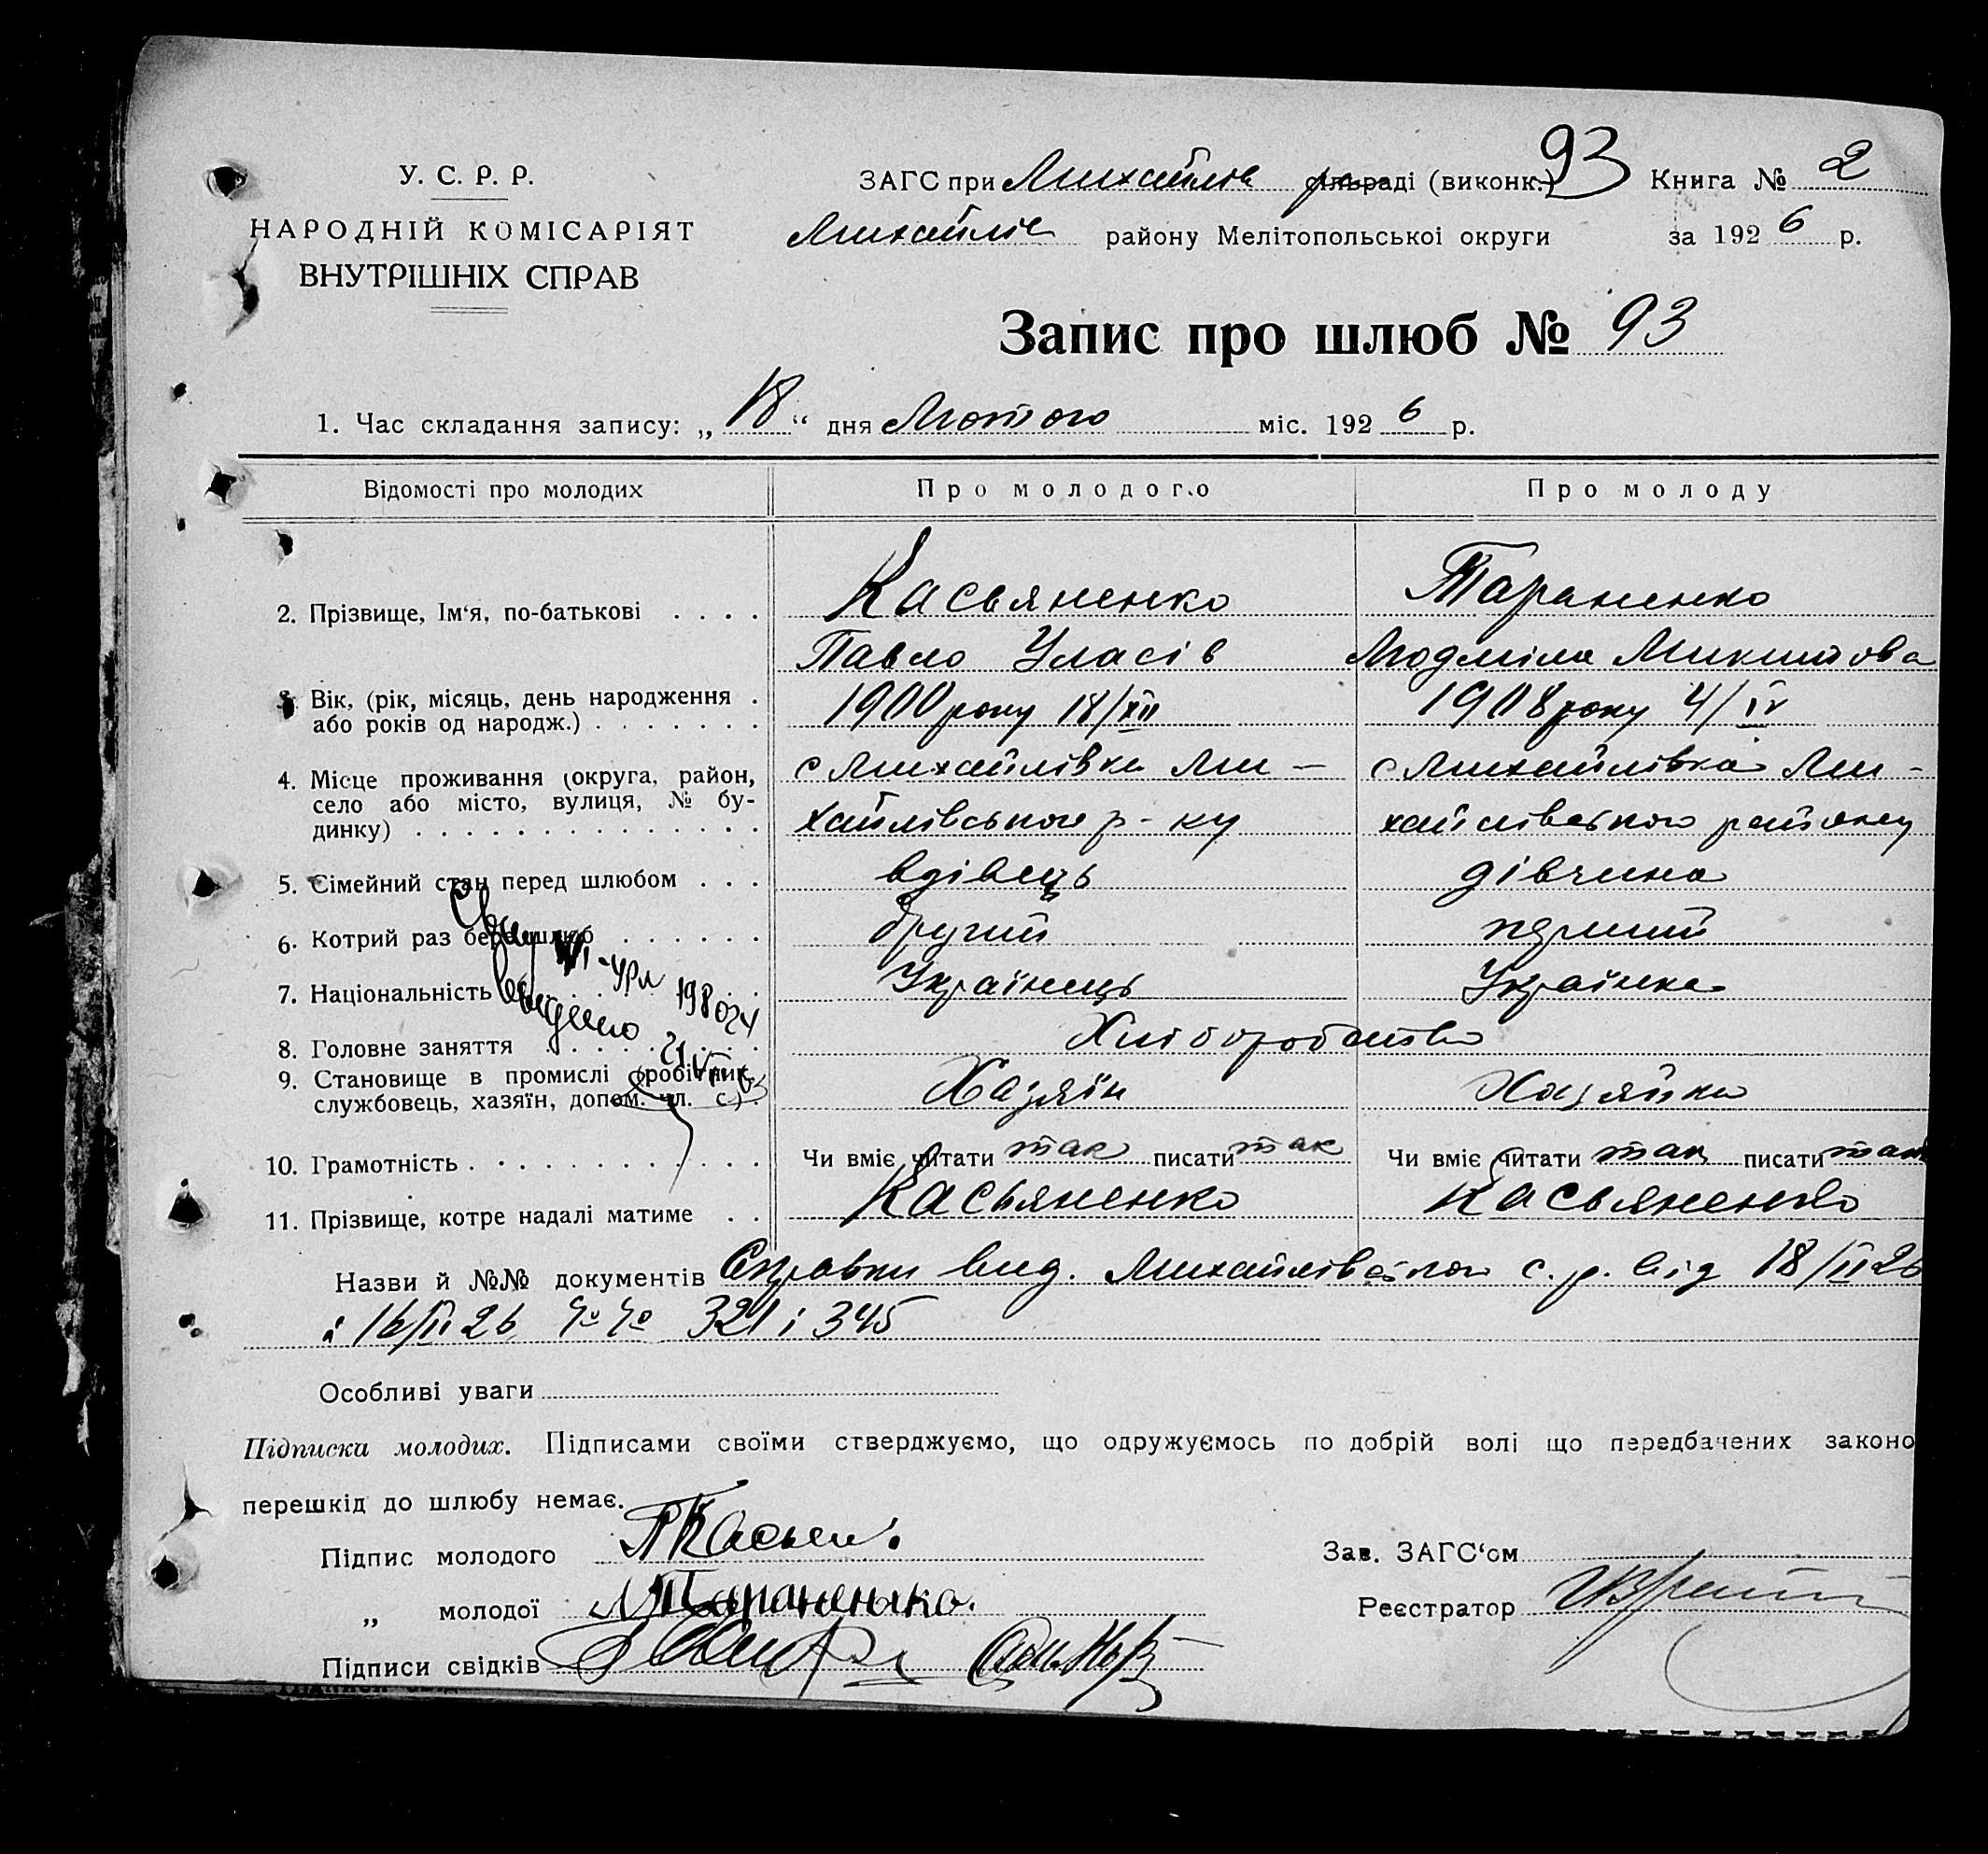 У. С. Р. Р.
НАРОДНІЙ КОМІСАРІЯТ
ВНУТРІШНІХ СПРАВ
ЗАГС при Михайлів сільраді (виконк.) 93 Книга № 2
Михайлів району Мелітопольськоі округи за 1926 р.
Запис про шлюб № 93
1. Час складання запису: „ 18 “ дня Лютого міс. 1926 р.
Відомості про молодих Про молодого Про молоду
2. Прізвище, Ім‘я, по-батькові . . . . Касьяненко Тараненко
Павло Уласів Людміла Микитова
3. Вік, (рік, місяць, день народження . 1900 року 18/XII 1908 року 4/IV
або років од народж.) . . . . . . .
4. Місце проживання (округа, район, с Михайлівка Ми- с Михайлівка Ми-
село або місто, вулиця, № бу-
динку) . . . . . . . . . . . . . . хайлівського р-ну хайлівського району
5. Сімейний стан перед шлюбом . . . вдівець дівчина
6. Котрий раз бере шлюб . . . . . . другий перший
7. Національність Українець Українка
8. Головне заняття Хліборобство
9. Становище в промислі (робітник, Хазяїн Хазяйка
службовець, хазяїн, допом. чл. с.) .
10. Грамотність . . . . . . . . . . . . Чи вміє читати так писати так Чи вміє читати так писати так
11. Прізвище, котре надалі матиме . . Касьяненко Касьяненко
Назви й №№ документів Справки вид. Михайлівською с. р. від 18/II 26
і 16/II 26 №№ 321 і 345
Особливі уваги
Підписка молодих. Підписами своїми стверджуємо, що одружуємось по добрій волі що передбачених законо
перешкід до шлюбу немає.
Підпис молодого ПКасьян
„ молодої ЛТараненько.
Підписи свідків
Зав. ЗАГС‘ом
Реєстратор